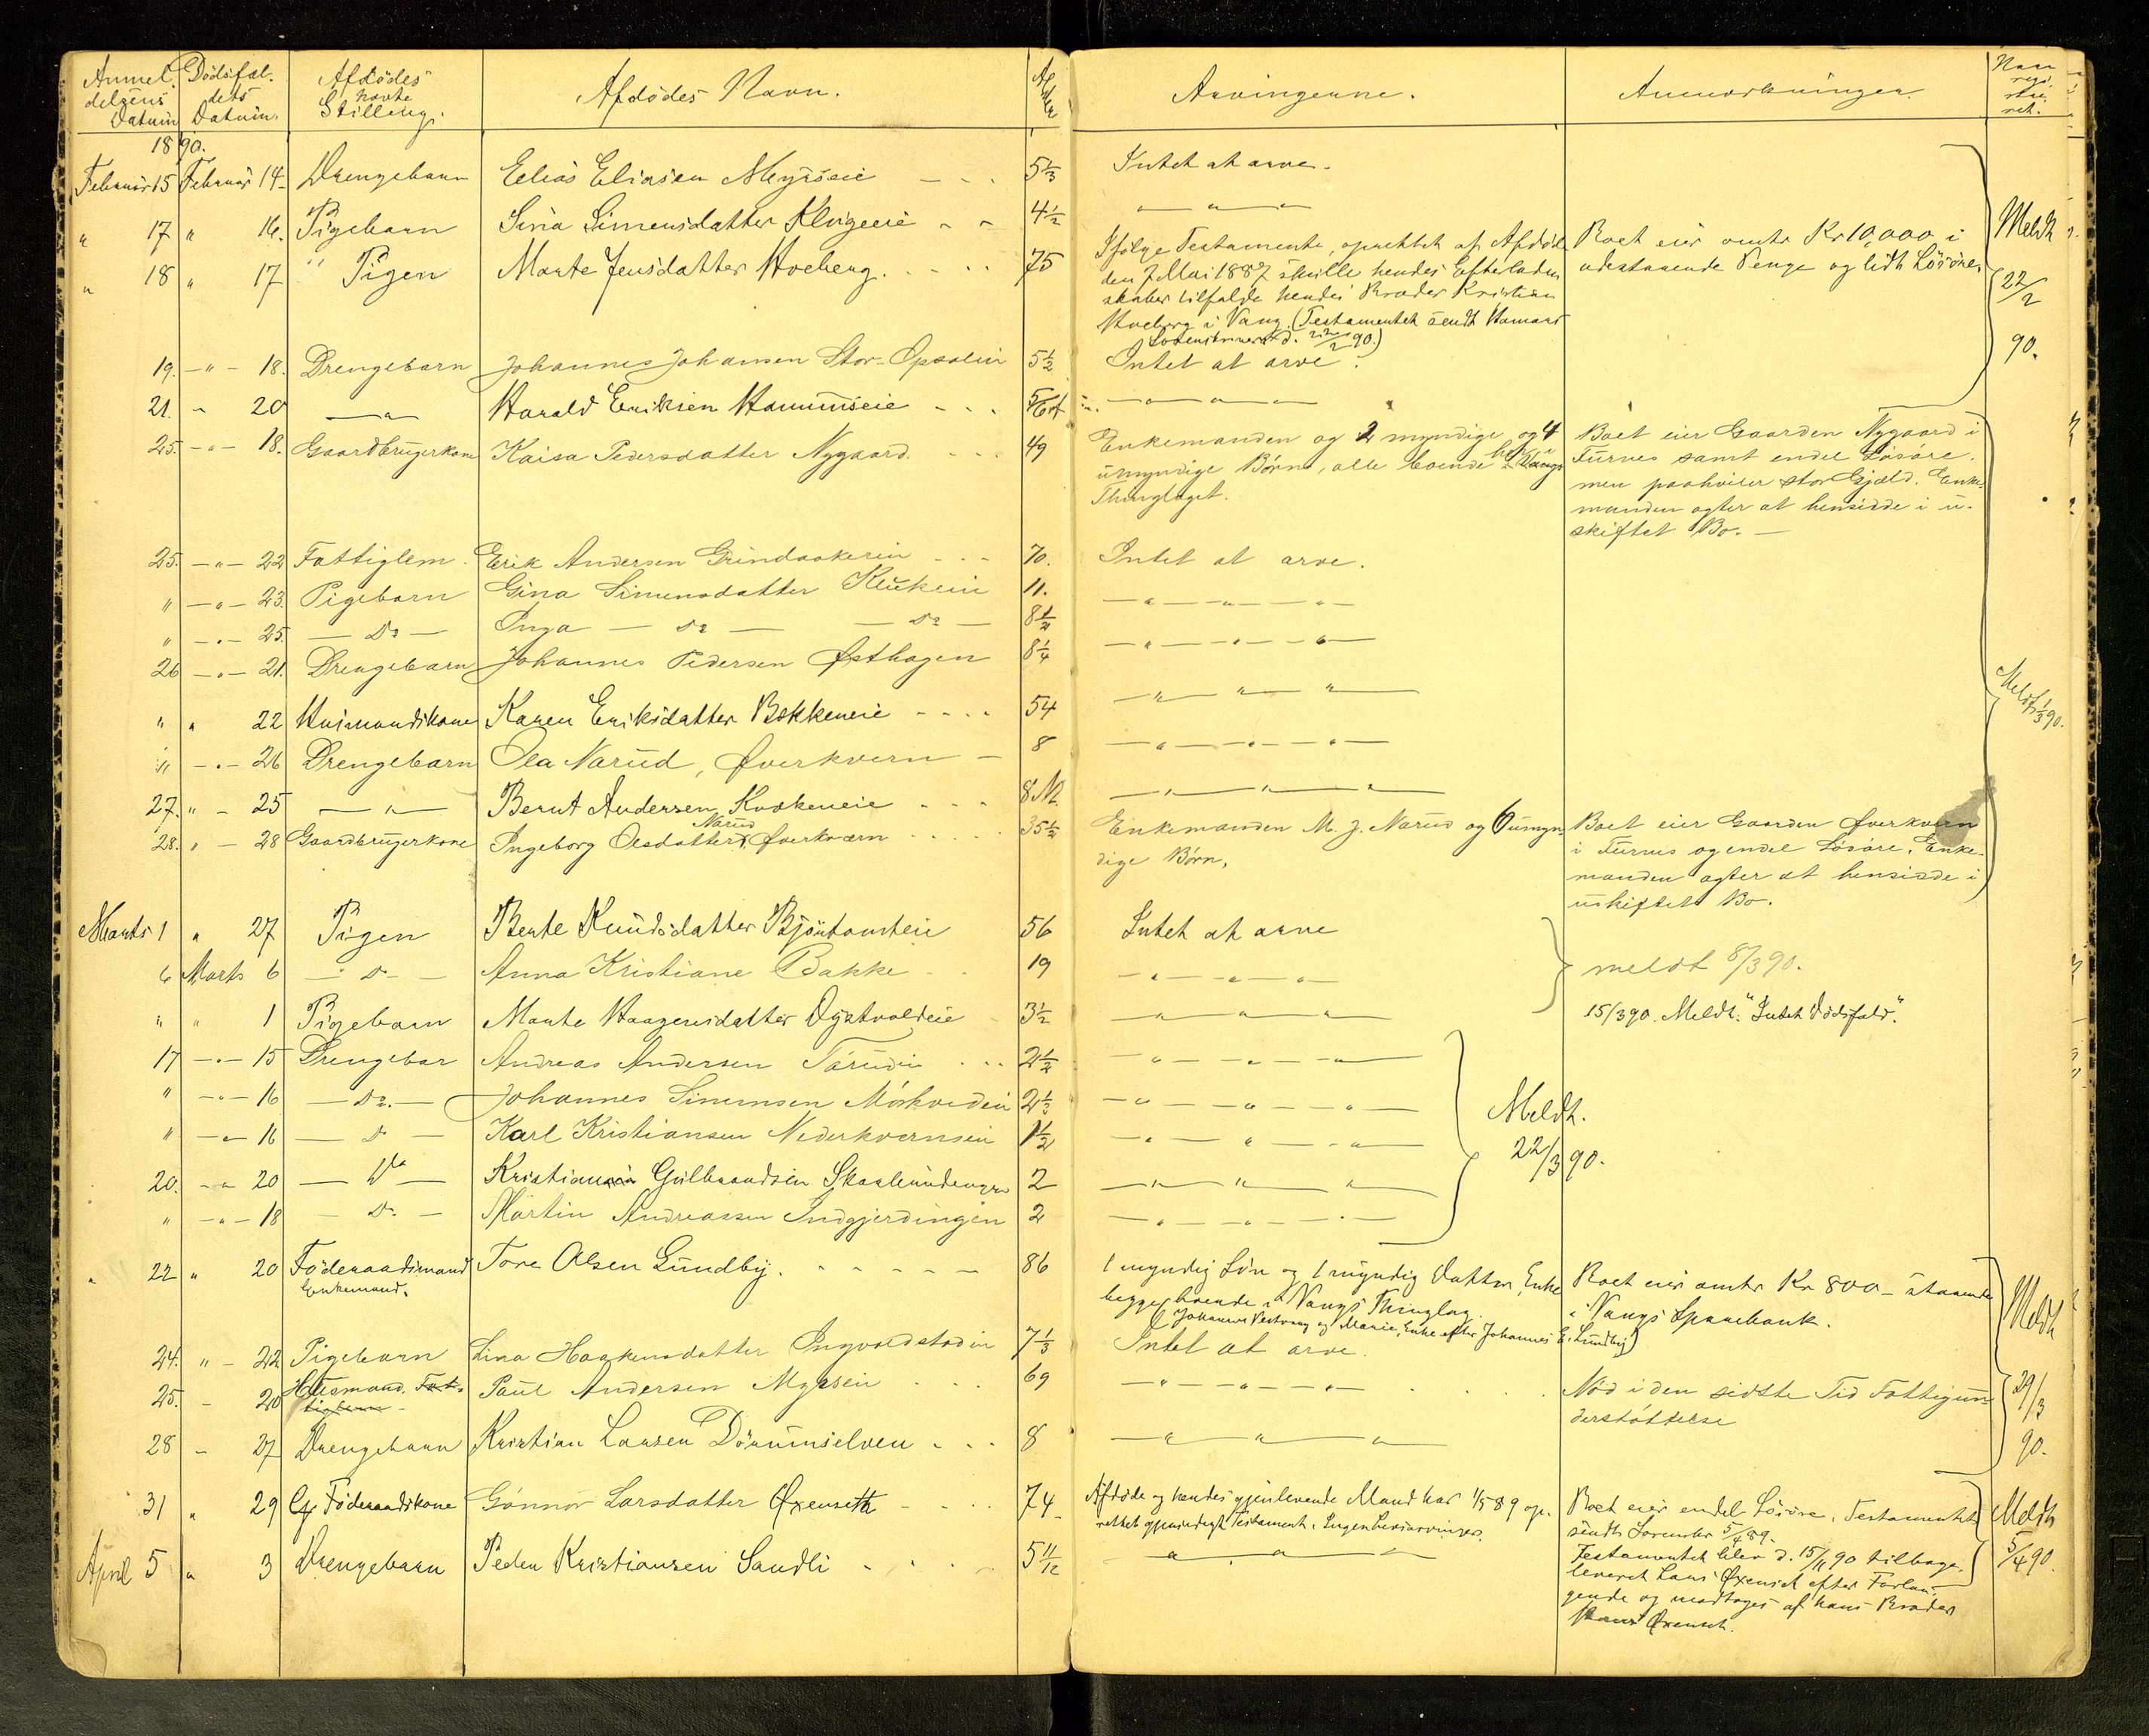 Anmel- Dødsfal- Afdødes Afdødes Navn. Al- Arvingerne. Anmærkninger. Naar
delsens dets havte der regi-
Datum Datum. Stilling. stre-
ret.
1890.
Februar 15 Februar 14 Drengebarn Elias Eliasen Myrseie 5 1/3 Intet at arve.
" 17 " 16. Pigebarn Sina Simensdatter 4 1/2 — " —
" 18 " 17 Pigen Marte Jensdatter Hoeberg 75 Ifølge Testamente, oprettet af Afdøde Boet eier omtr Kr 10,000 i
den 7 Mai 1887 skulle hendes Efterladen- udestaaende Penge og lidt Løsøre
skaber tilfalde hendes Broder Kristian
Hoeberg i Vang. (Testamentet sendt Hamars
d. 22/2 90.)
Meldt
22/2
90.
19. — " — 18. Drengebarn Johannes Johansen Stor-Opsalin 5 1/2 Intet at arve.
21. " 20 — " — Harald Eriksen Hammseie — " — " —
25. — " — 18. Gaardbrugerkone Kaisa Pedersdatter Nygaard 49 Enkemanden og 2 myndige og 4 Boet eier Gaarden Nygaard i
umyndige Børn, alle boende her i Vangs Furnes samt endel Løsøre,
Thinglaget. men paahviler stor Gjæld. Enke-
manden agter at hensidde i u-
skiftet Bo. —
25. — " — 22 Fattiglem Erik Andersen Grindaakerin 70. Intet at arve.
" — " — 23. Pigebarn Gina Simensdatter Klukein 11. — " — " — " —
" — " — 25. — Do — Inga — Do — — Do — 8 1/2 — " — " — " —
26 — " — 21. Drengebarn Johannes Pedersen Østhagen 8 1/4 — " — " — " —
" " 22 Husmandskone Karen Eriksdatter Bækkeneie 54 — " — " — " —
" — " — 26 Drengebarn Ola Narud, Øverkvern 8 — " — " — " —
27. " - 25 — " — Bernt Andersen Kvækeneie 8 M. Meldt 1/3 90.
28. " — 28 Gaardbrugerkone Ingeborg Olsdatter Narud, Øverkværn 35 1/2 Enkemanden M. J. Narud og 6 umyn- Boet eier Gaarden Øverkvern
dige Børn. i Furnes og endel Løsøre. Enke-
manden agter at hensidde i
uskiftet Bo.
Marts 1 " 27 Pigen Berte Knudsdatter 56 Intet at arve
6 Marts 6 — Do — Anna Kristiane Bakke 19 — " — " — " — meldt 8/3 90.
" " 1 Pigebarn Marte Haagensdatter 3 1/2 — " — " — " — 15/3 90. Meldt: "Intet Dødsfald".
17 — " — 15 Drengebar Andreas Andersen 2 1/2 — " — " — " —
" — " — 16 — Do. — Johannes Simensen Mørkvedin 2 1/2 — " — " — " — Meldt.
" — " — 16 — Do — Karl Kristiansen Nederkvernsein 1 1/2 — " — " — " — 22/3 90.
20. — " 20 — Do — Kristian Gulbrandsen 2 — " — " — " —
" — " — 18 — Do. — Martin Andreassen Indgjerdingen 2 — " — " — " —
" 22 " 20 Føderaadsmand Tore Olsen Lundby. 86 1 myndig Søn og 1 myndig Datter, Enke Boet eier omtr Kr 800 — staaende
Enkemand. begge boende i Vangs Thinglag. i Vangs Sparebank.
(Johannes Vestvang og Marie, Enke efter Johannes E. Lundby)
24. " — 22 Pigebarn Lina Haakensdatter Ingvoldstadin 7 1/3 Intet at arve.
25. - 20 Husmand. Paul Andersen Myrsein 69 — " — " — " — Nød i den sidste Tid Fattigun-
derstøttelse
28 — 27 Drengebarn Kristian Larsen 8 — " — " — " —
Meldt
29/3
90.
31 " 29 Føderaadskone Gønnor Larsdatter Øxenseth 74 Afdøde og hendes gjenlevende Mand har 1/5 89 op- Boet eier endel Løsøre. Testamentet
rettet gjensidigt Testament. Ingen Livsarvinger. sendt Sorenskr 5/4 89.
April 5 " 3 Drengebarn Peder Kristiansen Sandli 5 11/12 — " — " — Testamentet blev d. 15/11 90 tilbage-
leveret Lars Øxenset efter Forlan-
gende og modtoges af hans Broder
Hans Øxenset.
Meldt
5/4 90.